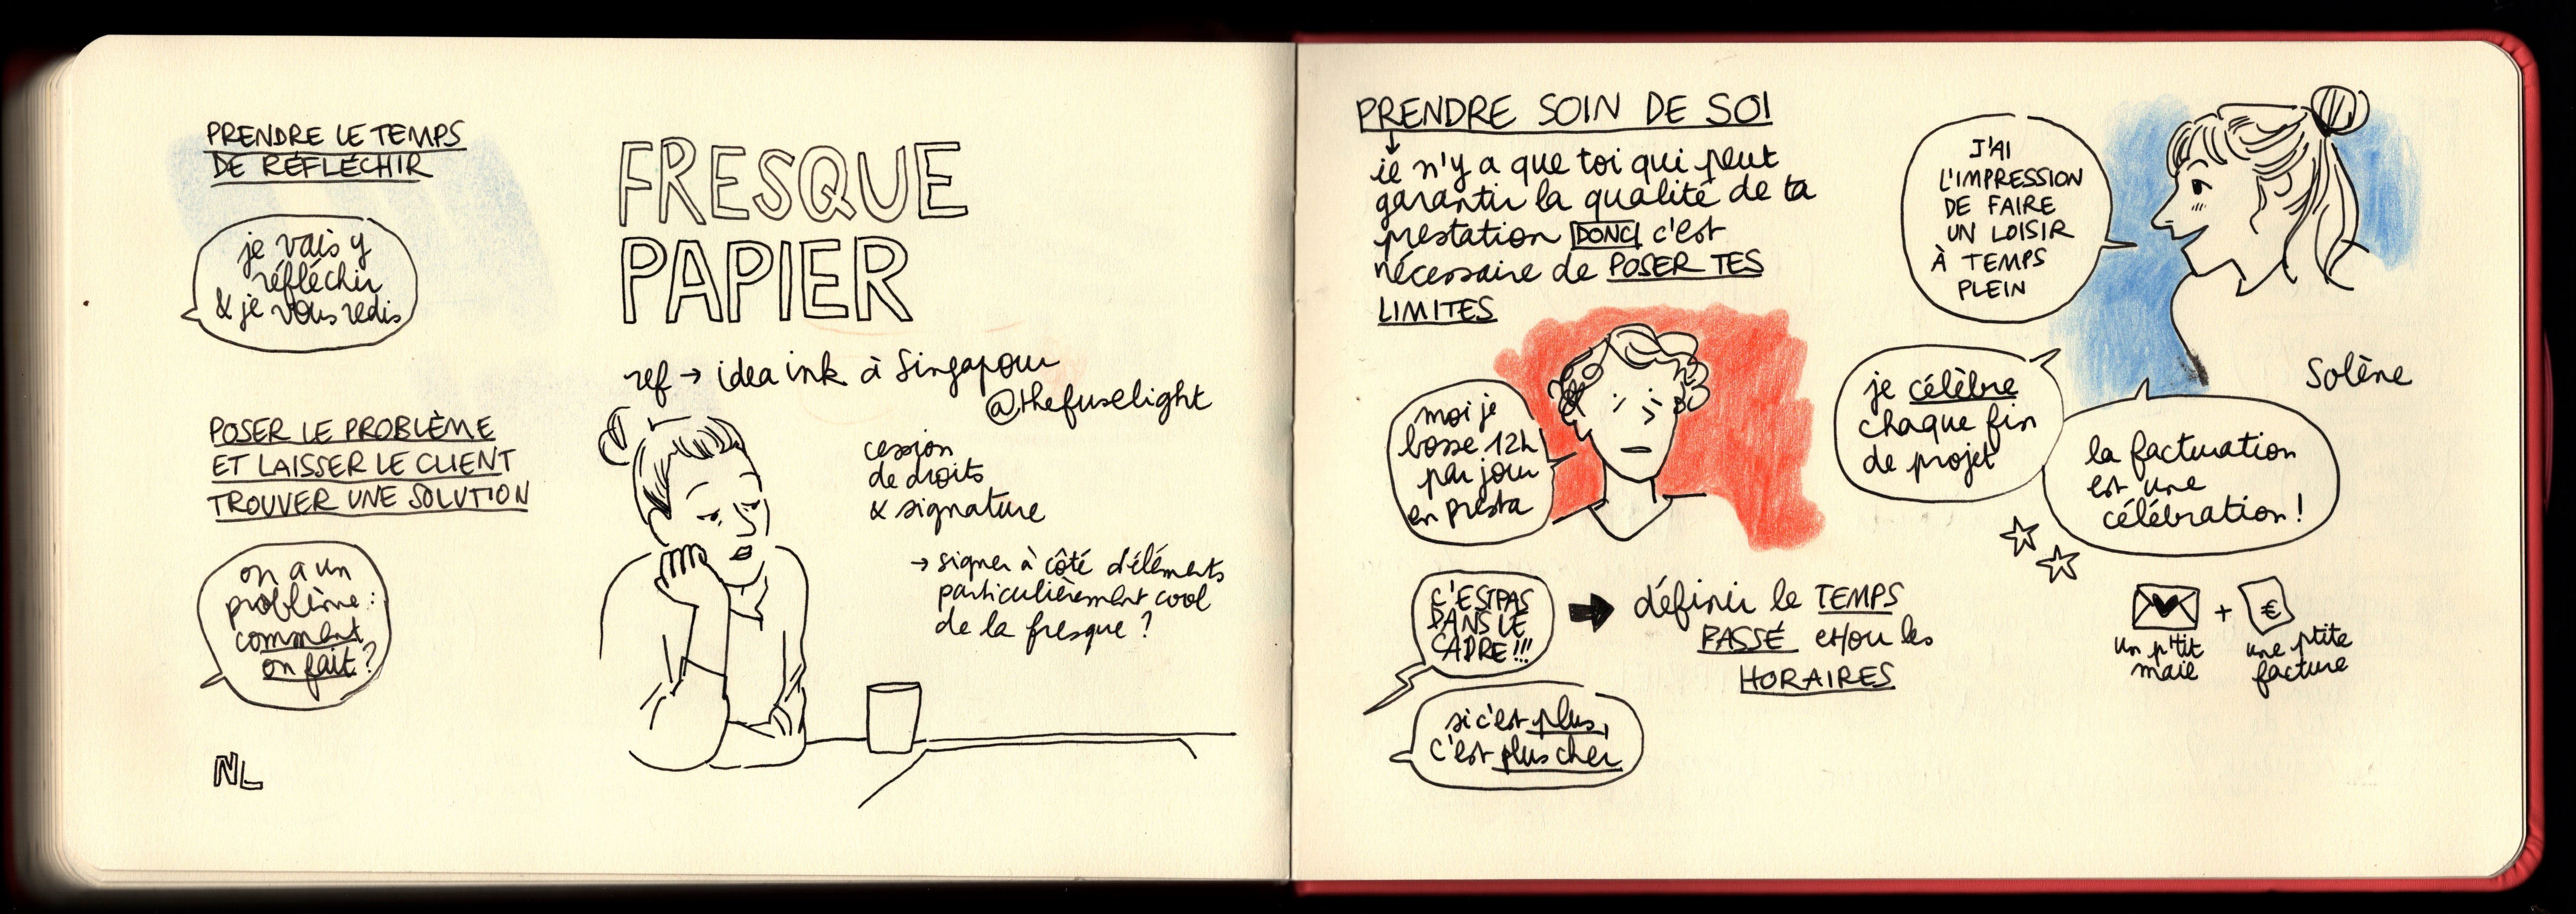 PRENDRE LE TEMPS
DE RÉFLÉCHIR
je vais y
réfléchir
& je vous redis
POSER LE PROBLÈME
ET LAISSER LE CLIENT
TROUVER UNE SOLUTION
on a un
problème :
comment
on fait ?
NL
FRESQUE
PAPIER
ref → idea ink à Singapour
@thefuselight
cession
de droits
& signature
→ signer à côté d'éléments
particulièrement cool
de la fresque ?
PRENDRE SOIN DE SOI
↓
il n'y a que toi qui peut
garantir la qualité de ta
prestation DONC c'est
nécessaire de POSER TES
LIMITES
moi je
bosse 12h
par jour
en presta
C'EST PAS
DANS LE
CADRE !!!
➡ définir le TEMPS
PASSÉ et/ou les
HORAIRES
si c'est plus,
c'est plus cher
J'AI
L'IMPRESSION
DE FAIRE
UN LOISIR
À TEMPS
PLEIN
Solène
je célèbre
chaque fin
de projet
la facturation
est une
célébration !
+ €
un p'tit
mail
une ptite
facture